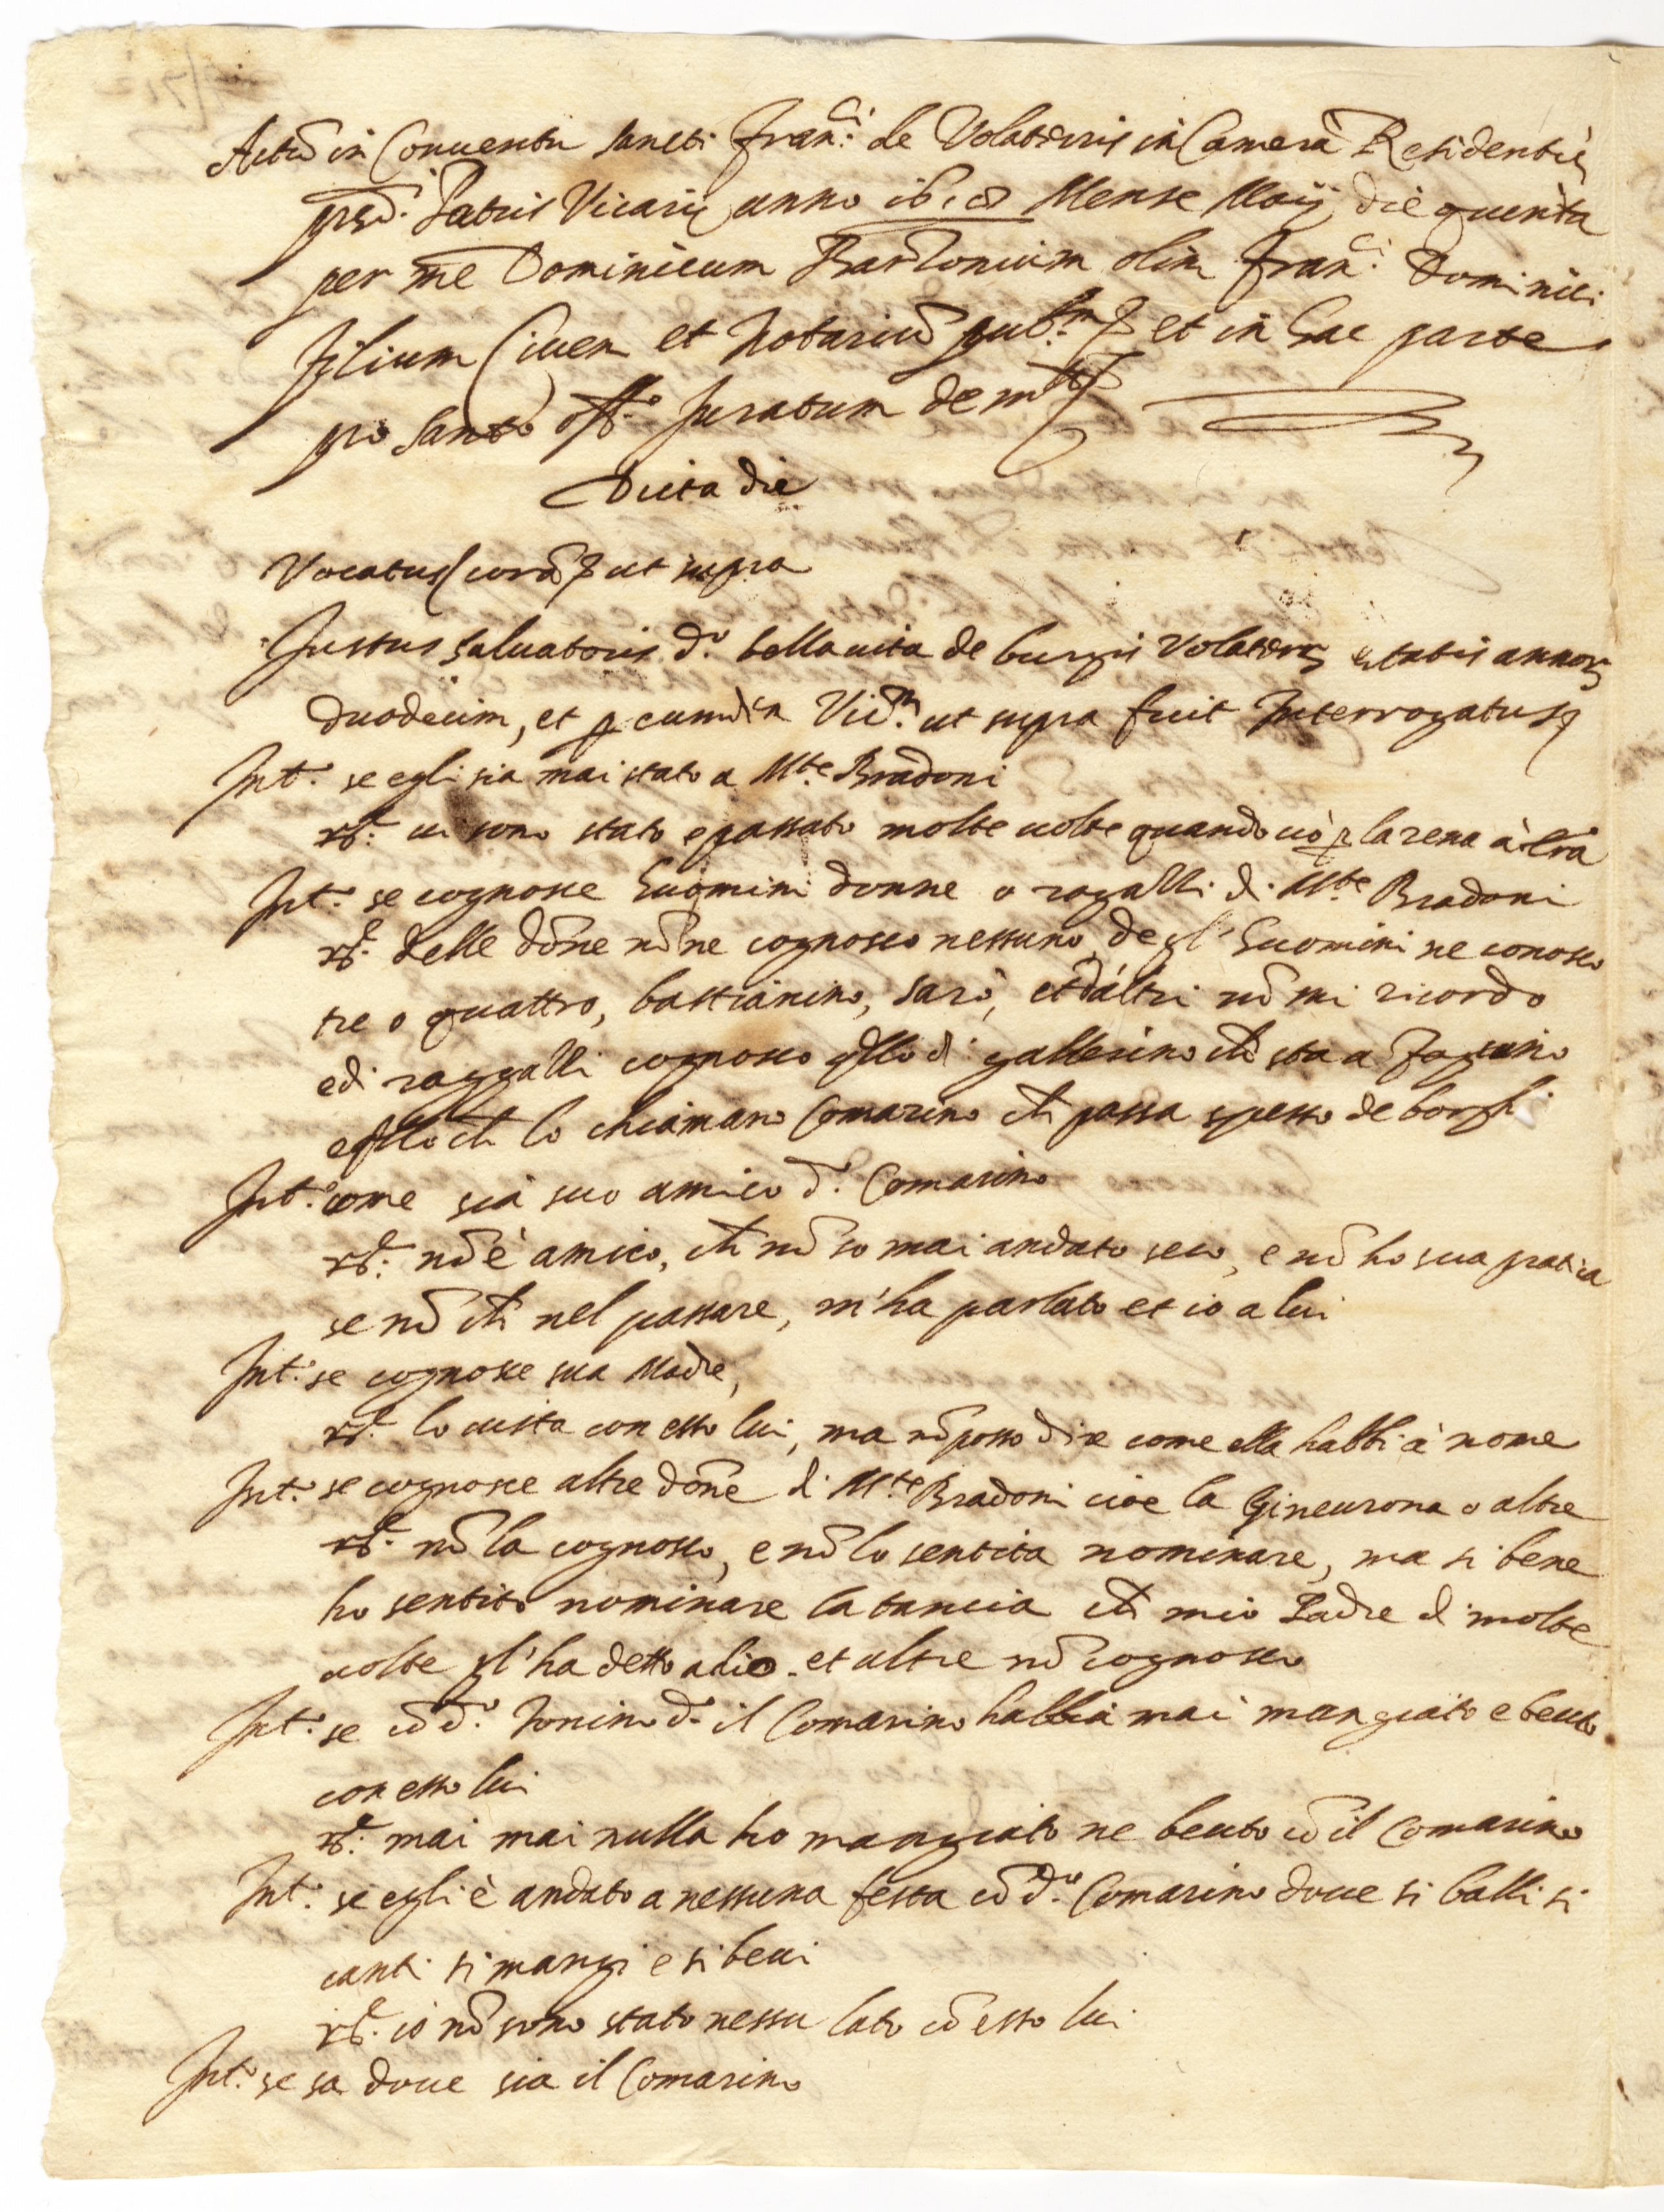 Actũ in Conuentu Sancti Fran:ci de Volaterris in Camera Residentie
pred: Patris Vicarij anno 1618 Mense Maij die quinta
per me Dominicum Bartholinum olim Fran:ci Dominici
filium Ciuem et Notariũ pub:m et in hac parte
pro Santo Off:o Juratum de m:to
Dicta die
Vocatus corã ut supra
Justus Saluatoris d:o bellauita de burgis Volaterr: etatis annor
duodecim, et p eumdem Vic:m ut supra fuit Interrogatus
Int: se egli sia mai stato a M:te Bradoni
R: ui sono stato e passato molte uolte quando uò p la rena à Era
Int: se cognosce huomini donne o ragazzi di M:te Bradoni
R: delle dõne nõ ne cognosco nessuno, degl' huomini ne conosco
tre o quattro, bastianino, Saro, et d'altri nõ mi ricordo
e di raggazzi cognosco q̃llo di gallesino ch̃ sta a Fagiano
e q̃llo ch̃ lo chiamano Comarino ch̃ passa spesso de borghi
Int: come sia suo amico d:o Comarino
R: nõ è amico, ch̃ nõ so mai andato seco, e nõ ho sua pratica
se nõ ch̃ nel passare, m'ha parlato et io a lui
Int: se cognosce sua Madre,
R: lo uista con esso lui, ma nõ posso dire come ella habbi à nome
Int: se cognosce altre dõne di M:te Bradoni cioe la Gineurona o altre
R: nõ la cognosco, e nõ lo sentita nominare, ma si bene
ho sentito nominare la tancia ch̃ mio Padre di molte
uolte gl'ha detto adio. et altre nõ cognosco
Int: se cõ d:o Tonino d:o il Comarino habbia mai mangiato e beuto
con esso lui
R: mai mai nulla ho mangiato ne beuto cõ il Comarino
Int: se egli è andato a nessuna festa cõ d:o Comarino doue si balli si
canti si mangi e si beui
R: io nõ sono stato nessu lato cõ esso lui
Int: se sa doue sia il Comarino